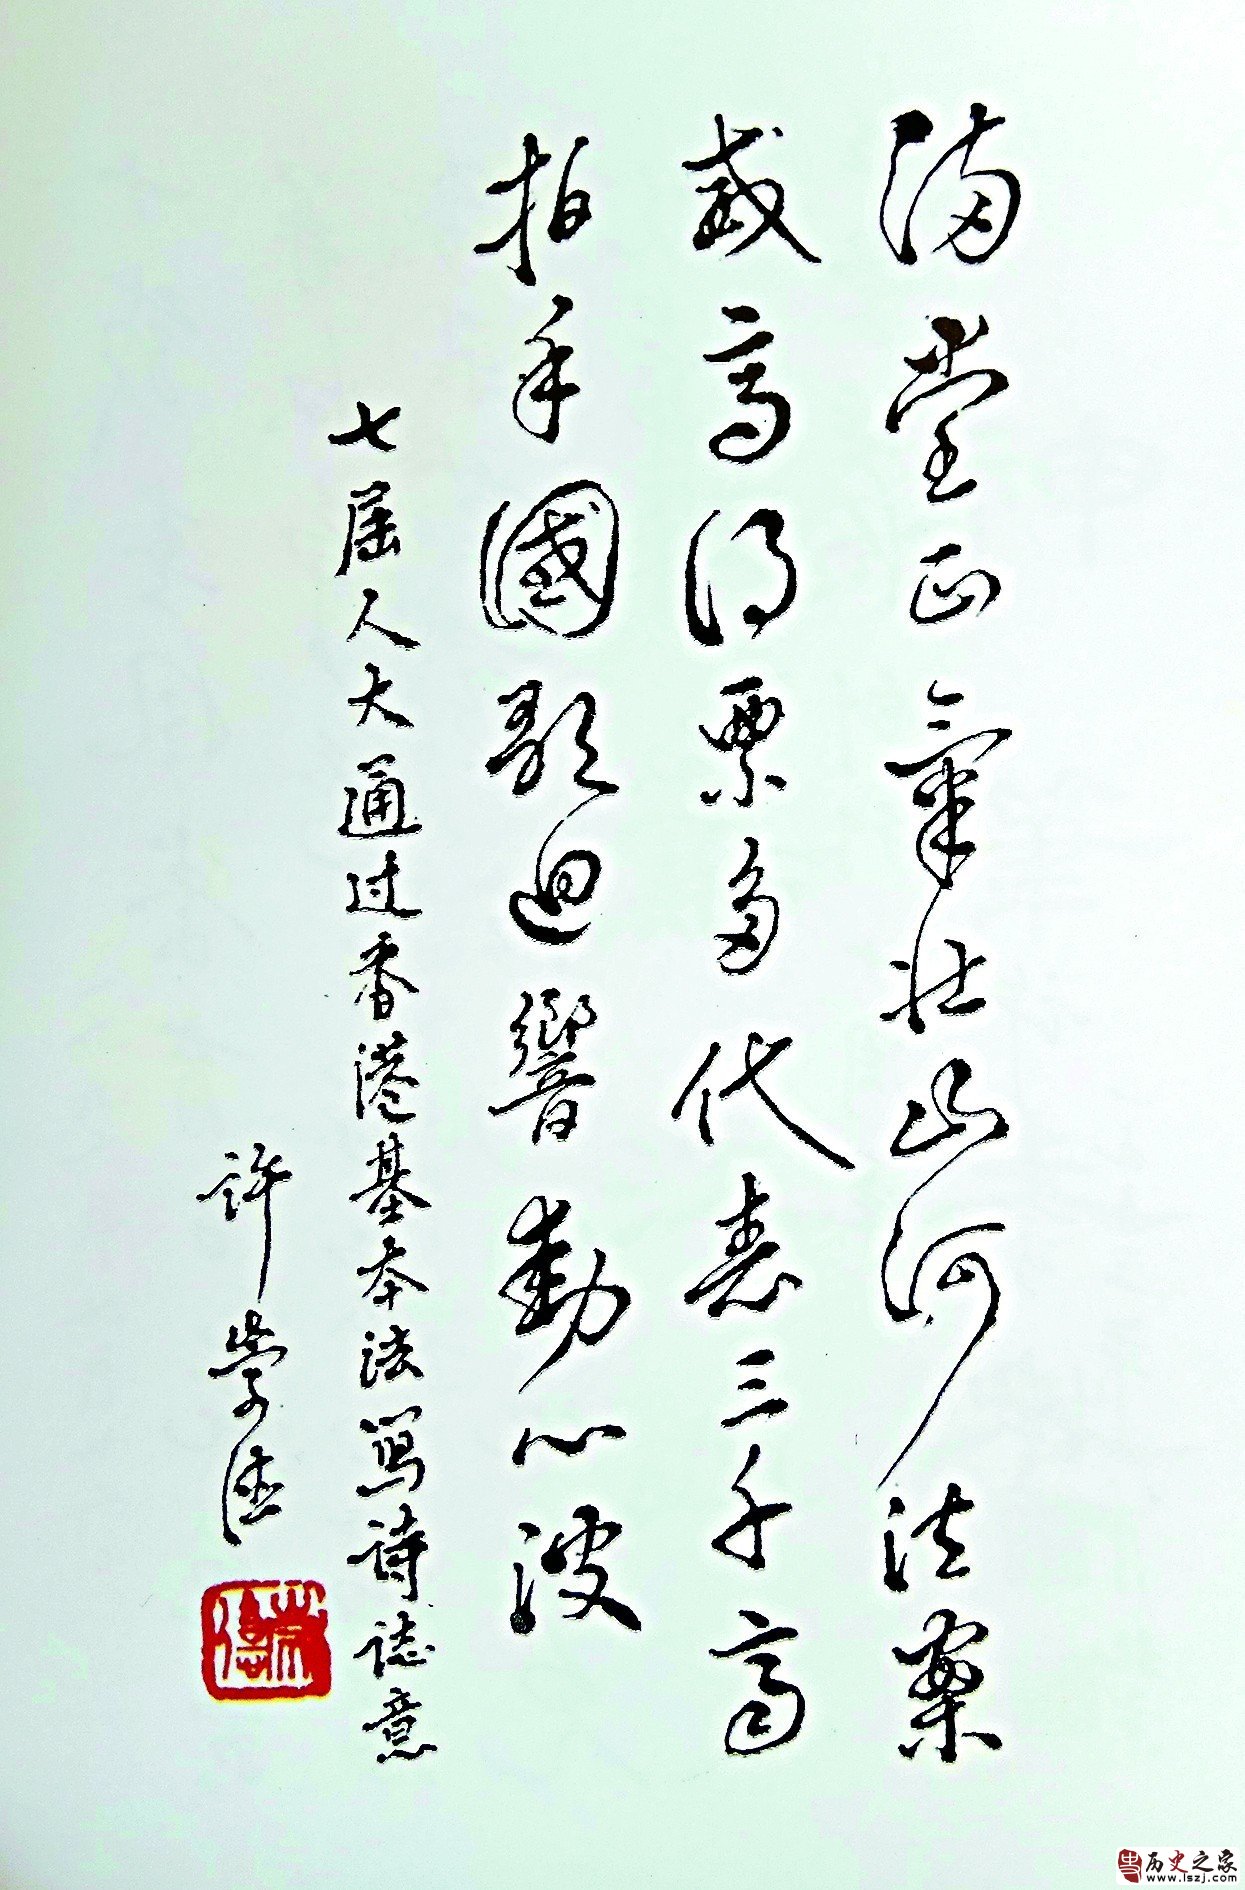 满堂正氣壮山河法案
威高得票多代表三千高
拍手國歌迴響動心波
七届人大通过香港基本法寫诗誌意
许崇德
崇德
历史之家
www.lszj.com